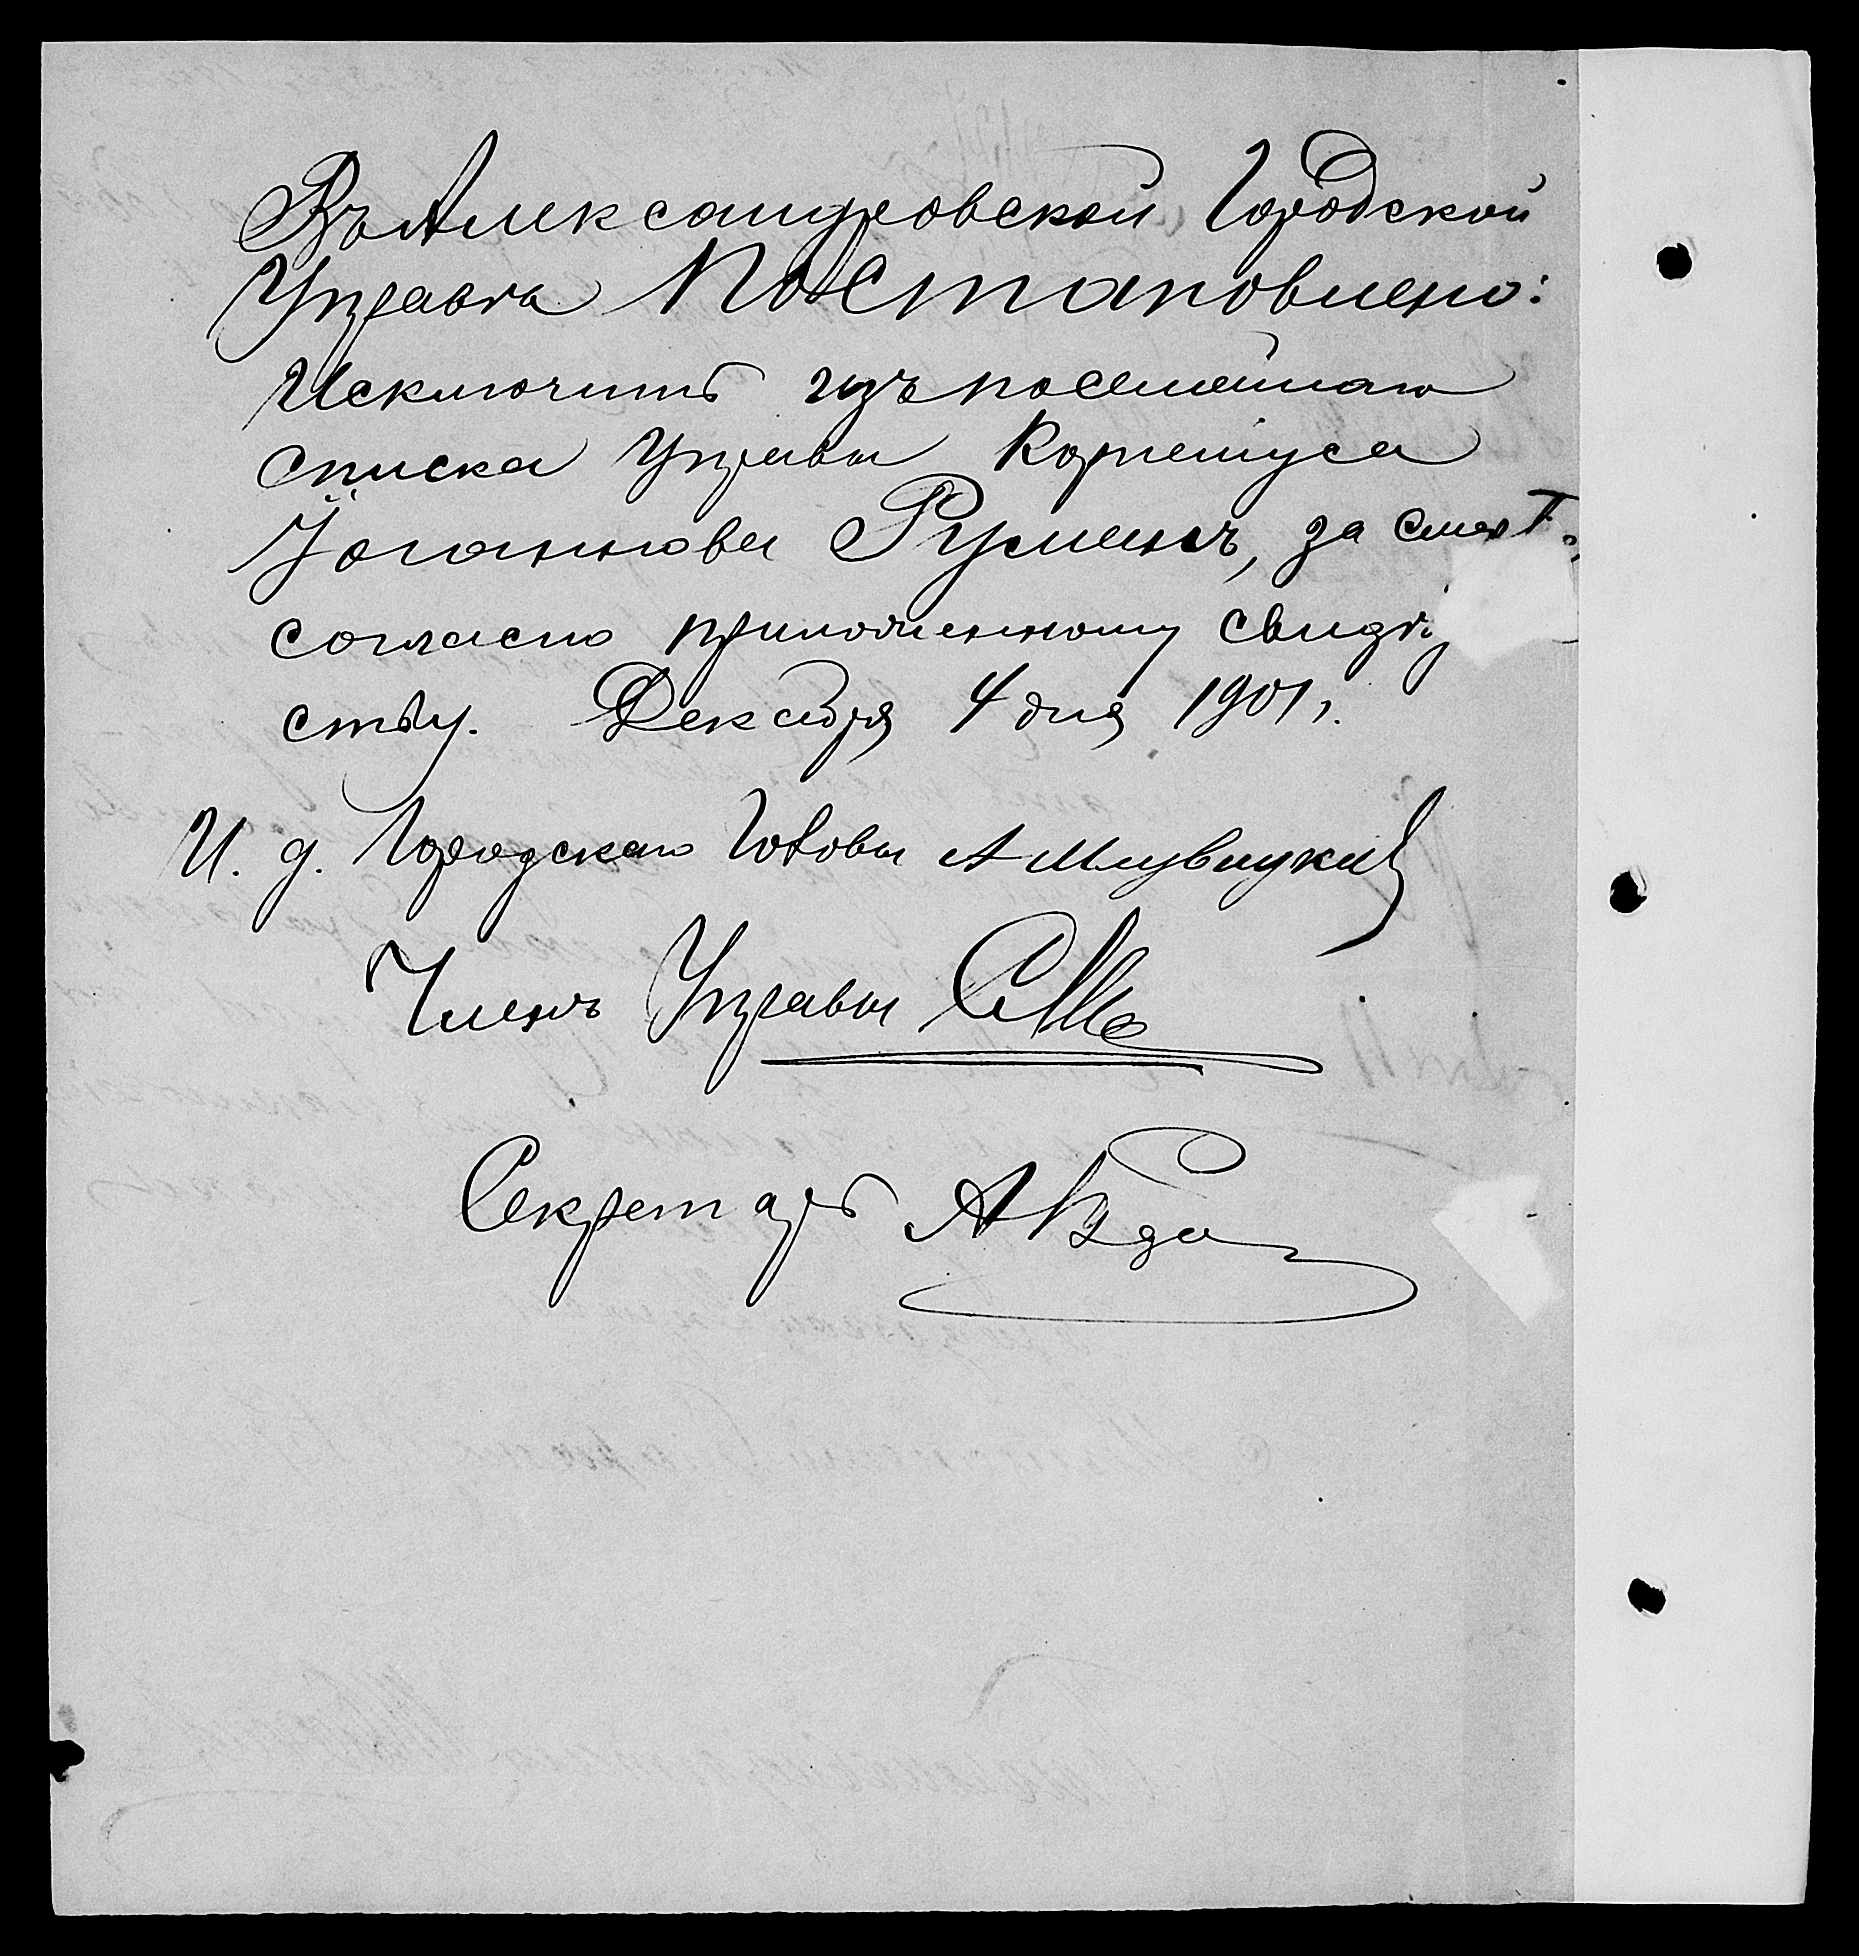 Въ Александровской Городской
Управѣ Постановлено:
Исключить изъ посемейнаго
списка Управы Корнелиуса
Іоганнова за смерт
согласно приложенному свидѣ
ству. Декабря 4 дня 1901 г.
И. д. Городского Головы А
Членъ Управы
Секретарь А